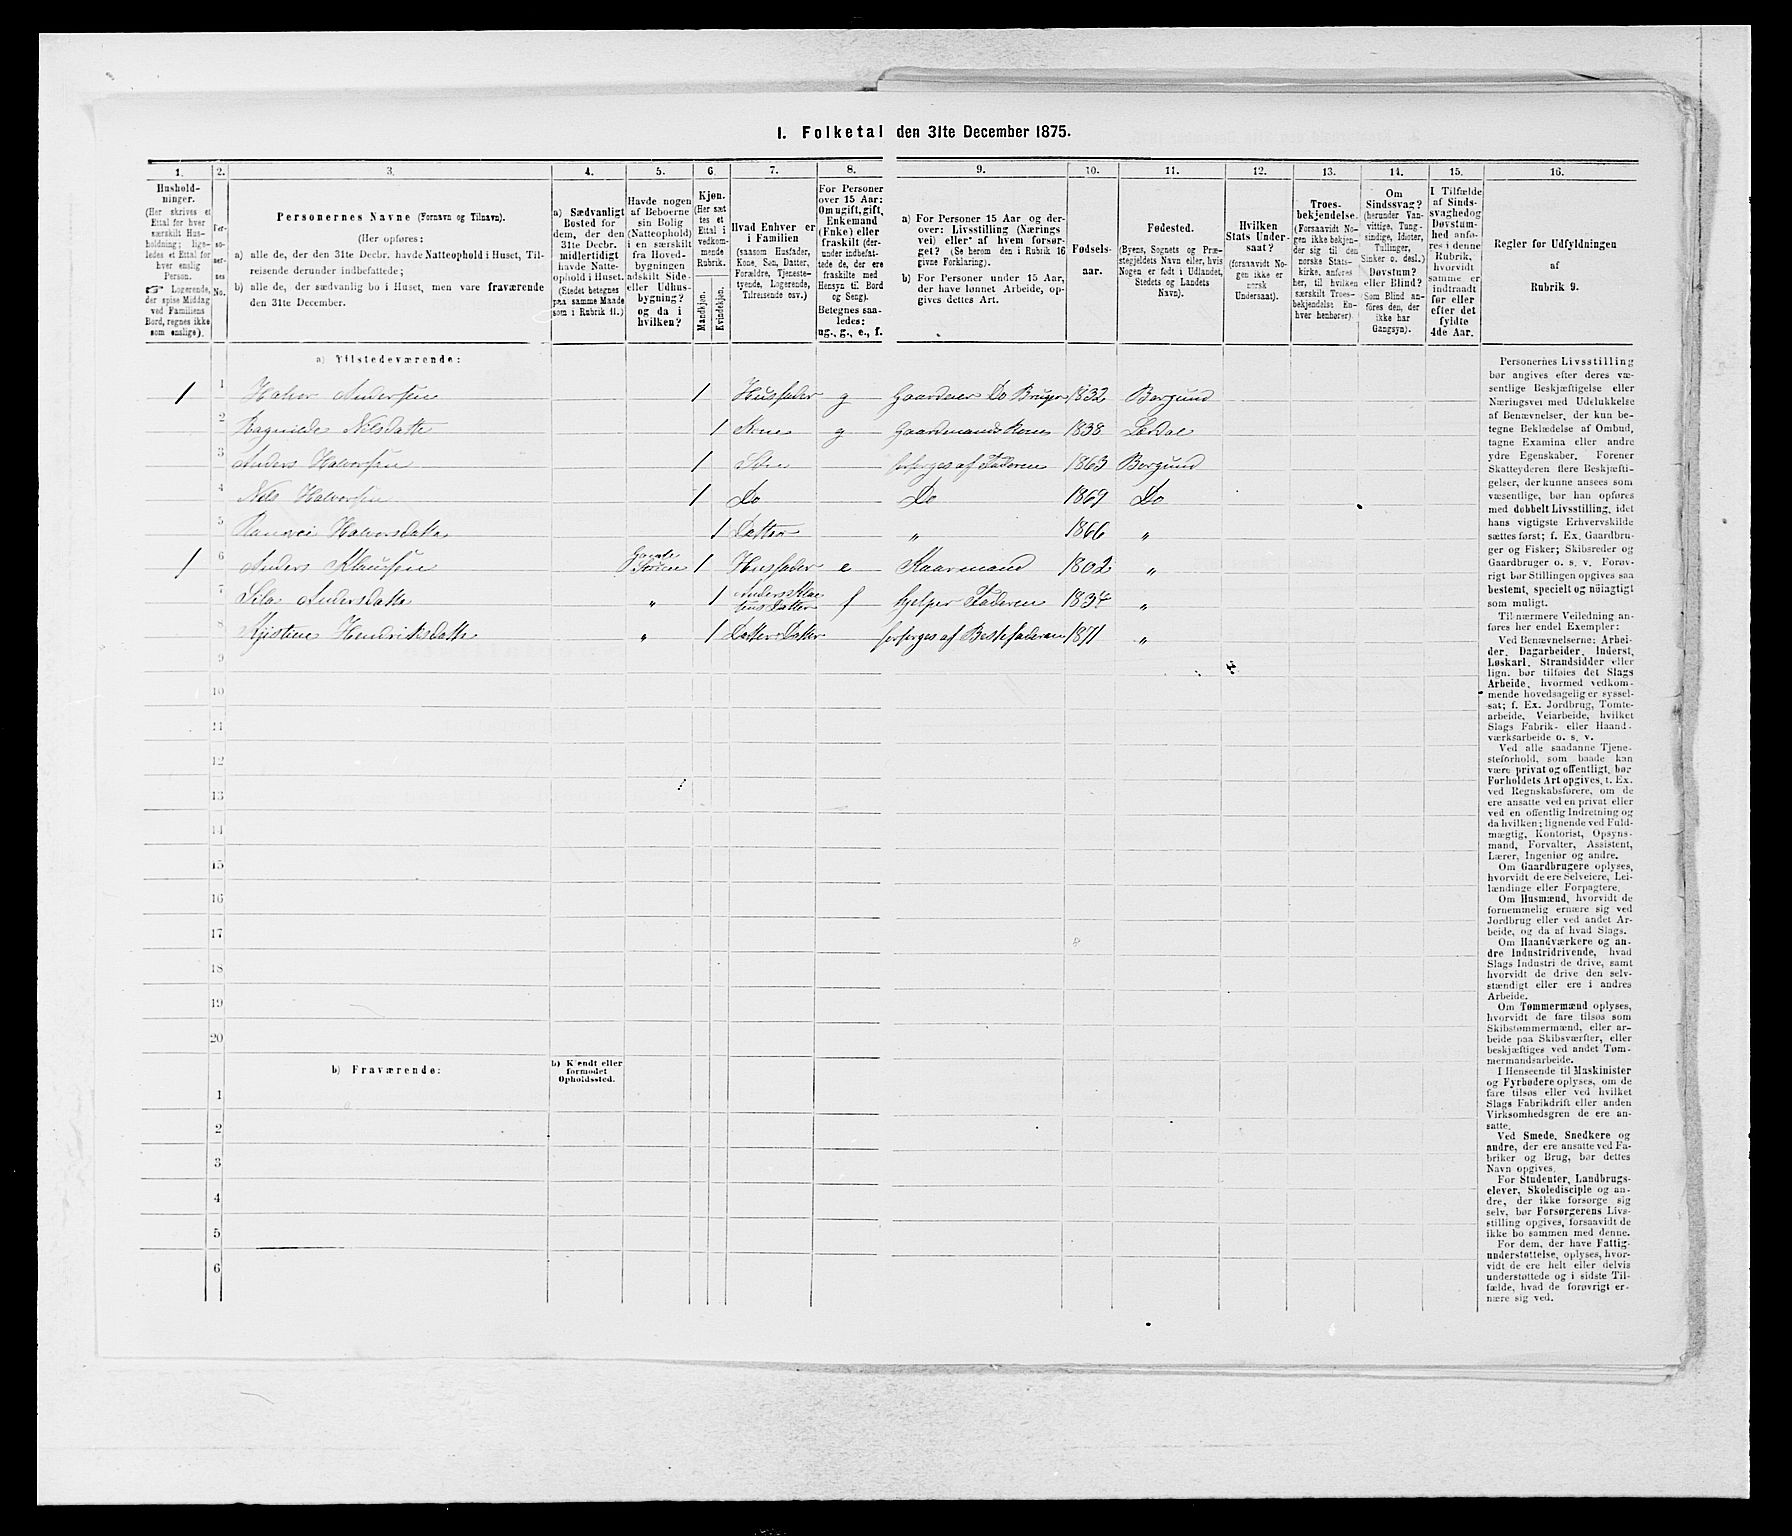 I. Folketal den 31te December 1875.
1. 2. 3. 4. 5. 6. 7. 8. 9. 10. 11. 12. 13. 14. 15. 16.
Hushold-
ninger.
(Her skrives et
Ettal for hver
særskilt Hus-
holdning; lige-
ledes et Ettal for
hver enslig
Person.
☞ Logerende,
der spise Middag
ved Familiens
Bord, regnes ikke
som enslige).
Per-
so-
ner-
nes
No.
Personernes Navne (Fornavn og Tilnavn).
(Her opføres:
a) alle de, der den 31te Decbr. havde Natteophold i Huset, Til-
reisende derunder indbefattede;
b) alle de, der sædvanlig bo i Huset, men vare fraværende
den 31te December.
a) Sædvanligt
Bosted for
dem, der den
31te Decbr.
midlertidigt
havde Natte-
ophold i Huset.
(Stedet betegnes
paa samme Maade
som i Rubrik 11.)
Havde nogen
af Beboerne
sin Bolig
(Natteophold)
i en særskilt
fra Hoved-
bygningen
adskilt Side-
eller Udhus-
bygning?
og da i
hvilken?
Kjøn.
(Her sæt
tes et
Ettal i
vedkom-
mende
Rubrik.
Mandkjøn.
Kvindekjøn.
Hvad Enhver er
i Familien
(saasom Husfader,
Kone, Søn, Datter,
Forældre, Tjeneste-
tyende, Logerende,
Tilreisende osv.)
For Personer
over 15 Aar:
Om ugift, gift,
Enkemand
(Enke) eller
fraskilt (der-
under indbefat-
tede de, der ere
fraskilte med
Hensyn til Bord
og Seng).
Betegnes saa-
ledes:
ug., g., e., f.
a) For Personer 15 Aar og der-
over: Livsstilling (Nærings
vei) eller af hvem forsør-
get? (Se herom den i Rubrik 16
givne Forklaring).
b) For Personer under 15 Aar,
der have lønnet Arbeide, op-
gives dettes Art.
Fødsels-
aar.
Fødested.
(Byens, Sognets og Præ-
stegjeldets Navn eller, hvis
Nogen er født i Udlandet,
Stedets og Landets
Navn).
Hvilken
Stats Under-
saat?
(forsaavidt No-
gen ikke er
norsk
Undersaat).
Troes-
bekjendelse.
(Forsaavidt No-
gen ikke bekjen-
der sig til den
norske Stats-
kirke, anføres
her, til hvilken
særskilt Troes-
bekjendelse En-
hver henhører).
Om
Sindssvag?
(herunder Van-
vittige, Tung-
sindige, Idioter,
Tullinger,
Sinker o. desl.)
Døvstum?
eller Blind?
Som Blind an-
føres den, der
ikke har
Gangsyn).
I Tilfælde
af Sinds-
svaghed og
Døvstum-
hed anfø-
res i denne
Rubrik,
hvorvidt
samme er
indtraadt
før eller
efter det
fyldte
4de Aar.
Regler for Udfyldningen
af
Rubrik 9.
a) Tilstedeværende:
1 1 Halvor Andersen 1 Husfader g Gaardeier Do Bruger 1832 Borgund
2 Ragnilde Nilsdatte 1 Kone g Gaardmands Kone 1838 Lærdal
3 Anders Halvorsen 1 Søn forsørges af Faderen 1863 Borgund
4 Nils Halvorsen 1 Do Do 1869 Do
5 Ranvei Halvorsdatte 1 Datter „ 1866 „
1 6 Anders Klausen Gamle Stouen 1 Husfader e Kaarmand 1802 „
7 Sila Andersdatte „ 1 Anders Klau
sens Datter f hjelper Faderen 1834 „
8 Kjistine Hendriksdatte „ 1 Datter Datter forsørges af Bestefaderen 1871 „
9
10
11
12
13
14
15
16
17
18
19
20
b) Fraværende:
b) Kjendt eller
formodet
Opholdssted.
1
2
3
4
5
6
Personernes Livsstilling
bør angives efter deres væ-
sentlige Beskjæftigelse eller
Næringsvei med Udelukkelse
af Benævnelser, der kun be-
tegne Beklædelse af Ombud,
tagne Examina eller andre
ydre Egenskaber. Forener
Skatteyderen flere Beskjæfti-
gelser, der kunne ansees som
væsentlige, bør han opføres
med dobbelt Livsstilling, idet
hans vigtigste Erhvervskilde
sættes først; f. Ex. Gaardbru-
ger og Fisker; Skibsreder og
Gaardbruger o. s. v. Forøv-
rigt bør Stillingen opgives saa
bestemt, specielt og nøiagtigt
som muligt.
Til nærmere Veiledning an-
føres her endel Exempler:
Ved Benævnelserne: Arbei-
der, Dagarbeider, Inderst,
Løskarl, Strandsidder eller
lign. bør tilføies det Slags
Arbeide, hvormed vedkom-
mende hovedsagelig er syssel-
sat; f. Ex. Jordbrug, Tomte-
arbeide, Veiarbeide, hvilket
Slags Fabrik- eller Haand-
værksarbeide o. s. v.
Ved alle saadanne Tjene-
steforhold, som baade kan
være privat og offentligt, bør
Forholdets Art opgives, t. Ex.
ved Regnskabsførere, om de
ere ansatte ved en privat eller
ved en offentlig Indretning og
da hvilken; lignende ved Fuld-
mægtig, Kontorist, Opsyns-
mand, Forvalter, Assistent,
Lærer, Ingeniør og andre.
Om Gaardbrugere oplyses,
hvorvidt de ere Selveiere, Lei-
lændinge eller Forpagtere.
Om Husmænd, hvorvidt de
fornemmelig ernære sig ved
Jordbrug eller ved andet Ar-
beide, og da af hvad Slags.
Om Haandværkere og an-
dre Industridrivende, hvad
Slags Industri de drive, samt
hvorvidt de drive den selv-
stændigt eller ere i andres
Arbeide.
Om Tømmermænd oplyses,
hvorvidt de fare tilsøs som
Skibstømmermænd, eller ar-
beide paa Skibsværfter, eller
beskjæftiges ved andet Tøm-
mermandsarbeide.
I Henseende til Maskinister
og Fyrbødere oplyses, om de
fare tilsøs eller ved hvilket
Slags Fabrikdrift eller anden
Virksomhedsgren de ere an-
satte.
Ved Smede, Snedkere og
andre, der ere ansatte ved Fa-
briker og Brug, bør dettes
Navn opgives.
For Studenter, Landbrugs-
elever, Skoledisciple og an-
dre, der ikke forsørge sig
selv, bør Forsørgerens Livs-
stilling opgives, forsaavidt de
ikke bo sammen med denne.
For dem, der have Fattig-
understøttelse, oplyses, hvor-
vidt de ere helt eller delvis
understøttede og i sidste Til-
fælde, hvad de forøvrigt er-
nære sig ved.